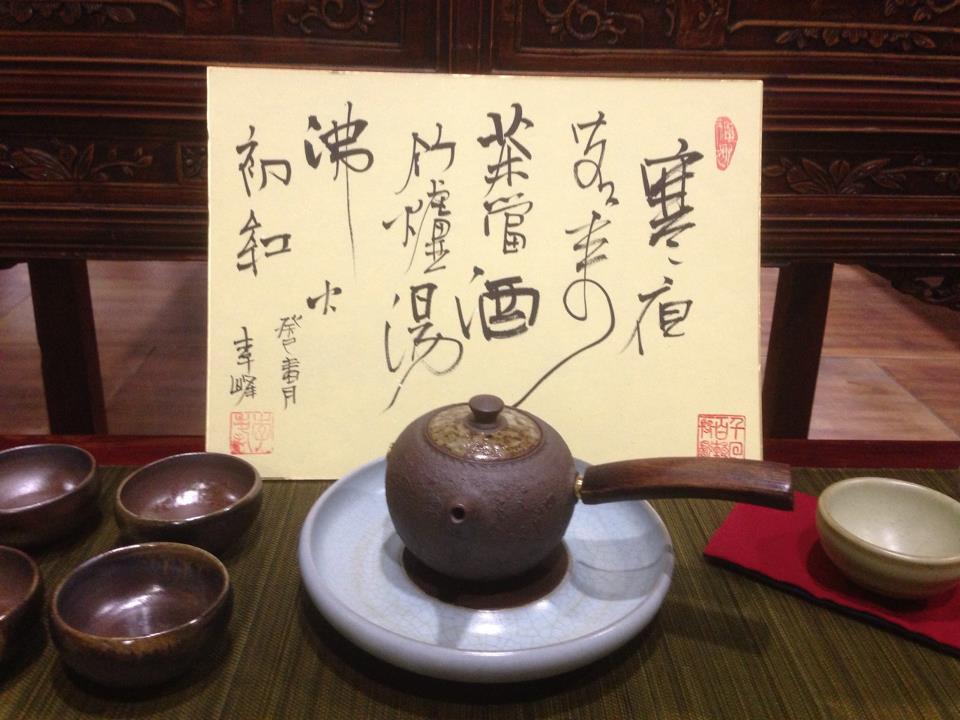 寒夜
客来
茶當酒
竹爐湯
沸火
初紅
癸巳 月
峰